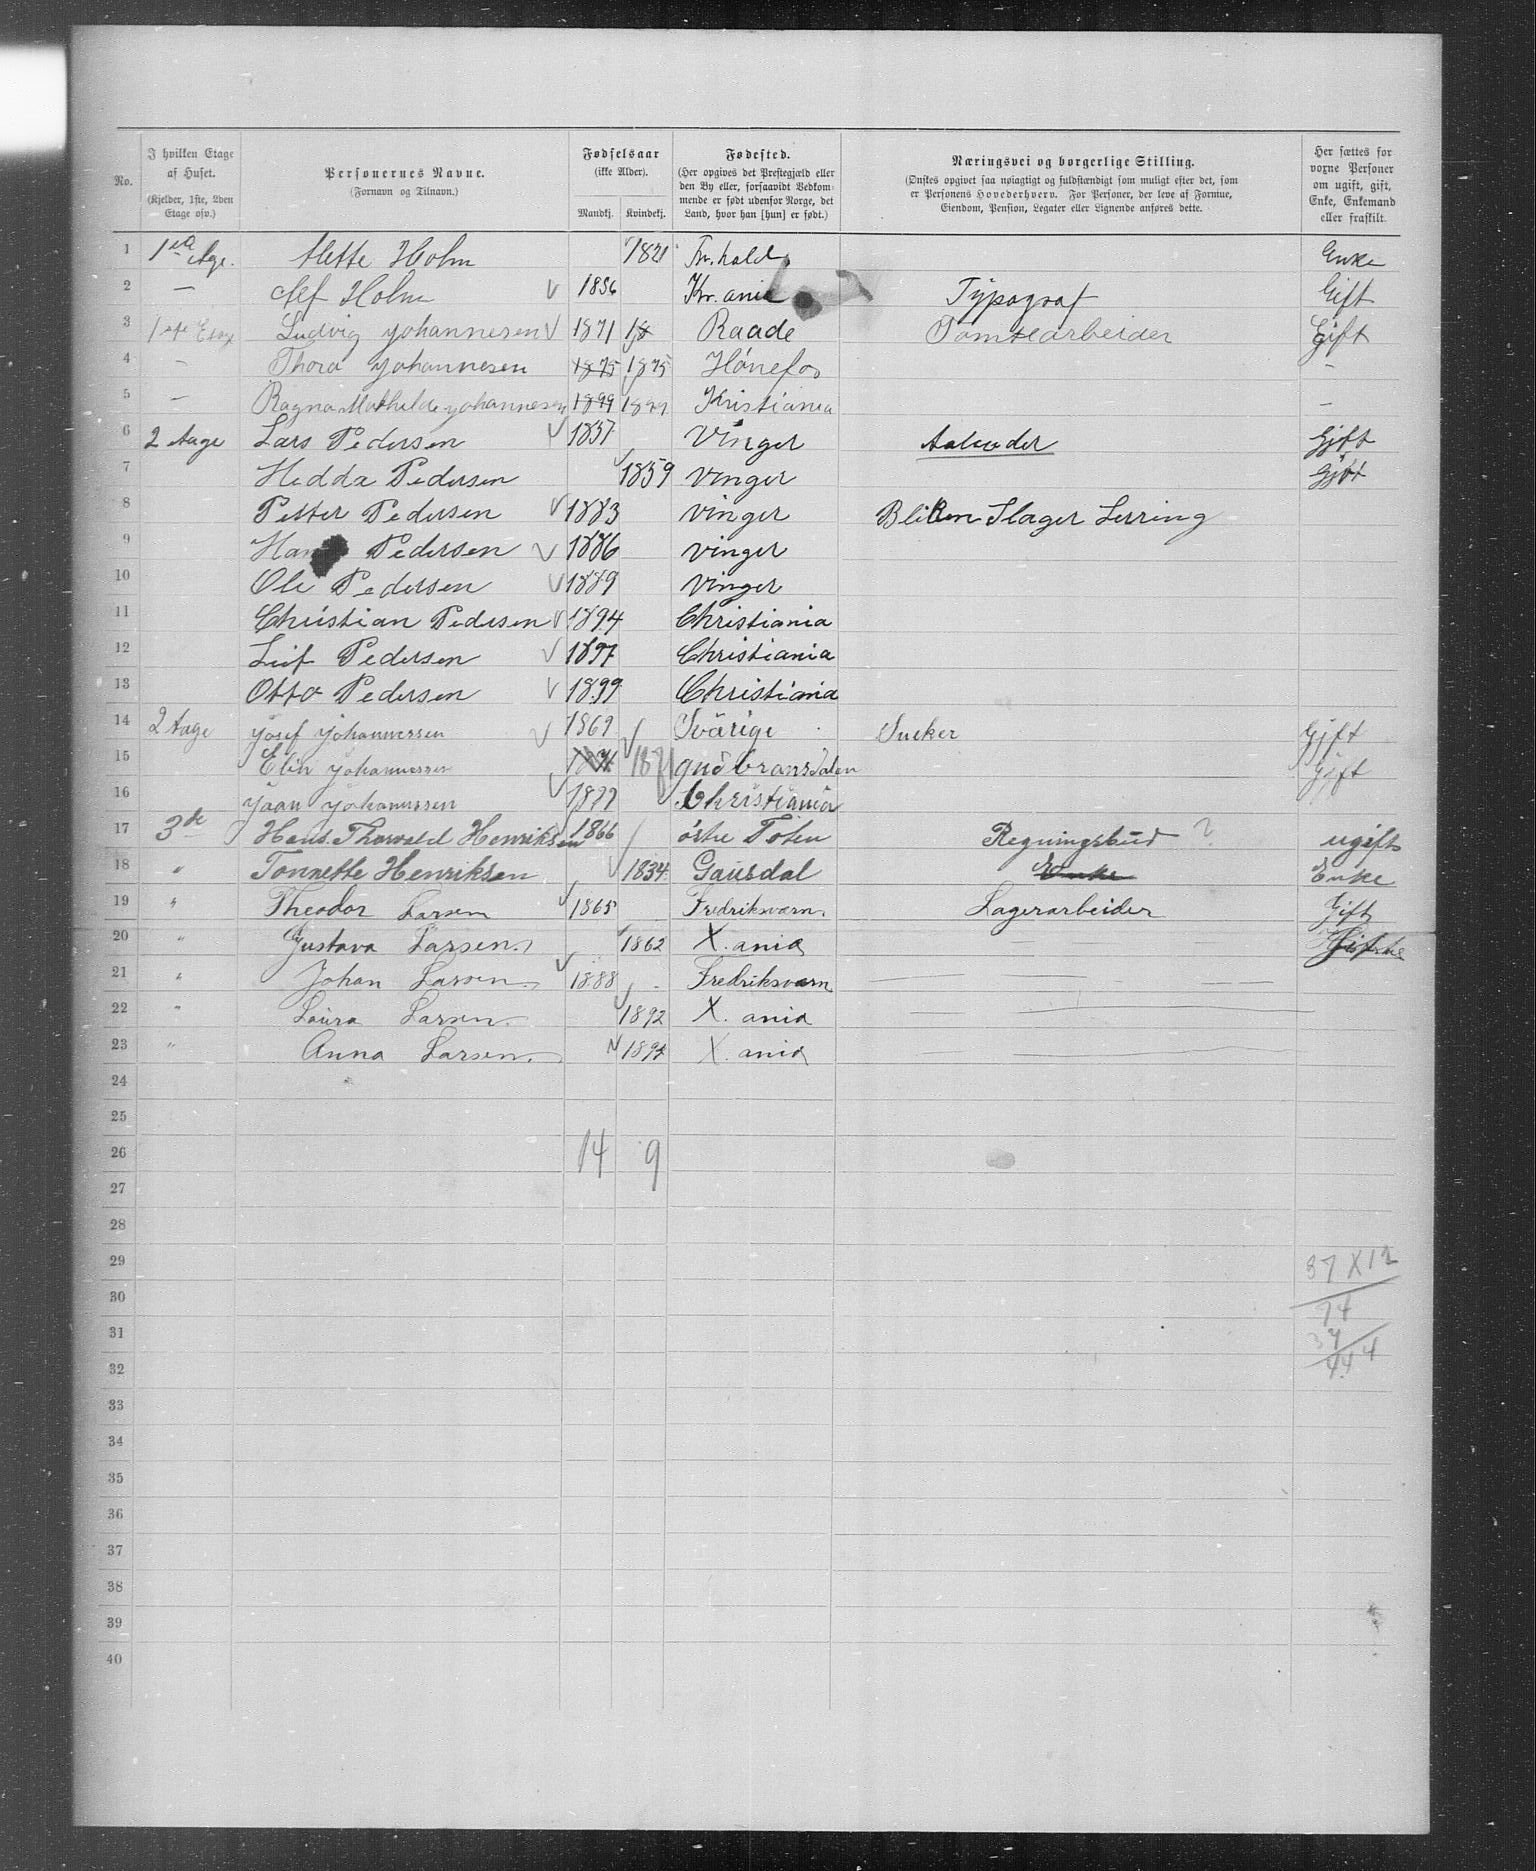 No.
I hvilken Etage af Huset.
(Kjelder, 1ste, 2den Etage osv.)
Personernes Navne.
(Fornavn og Tilnavn.)
Fødselsaar
(ikke Alder).
Mandkj. Kvindekj.
Fødested.
(Her opgives det Prestegjæld eller den By eller, forsaavidt Vedkommende er født udenfor Norge, det Land, hvor han [hun] er født.)
Næringsvei og borgerlige Stilling.
(Ønskes opgivet saa nøiagtigt og fuldstændigt som muligt efter det, som er Personens Hovederhverv. For Personer, der leve af Formue, Eiendom, Pension, Legater eller Lignende anføres dette.
Her sættes for voxne Personer om ugift, gift, Enke, Enkemand eller fraskilt.
1 Mette Holm 1821 Fr.hald Enke
2 — Holm 1856 Kr.ania Typograf Gift
3 1ste Ludvig Johannesen 1871 Raade Tomtearbeider Gift
4 — Thora Johannesen 1875 1875 Hönefos —
5 — Ragna Mathilde Johannesen 1899 1899 Kristiania —
6 2 Aage Lars Pedersen 1857 Vinger Gjift
7 Hedda Pedersen 1859 Vinger Gjift
8 Petter Pedersen 1883 Vinger Blikken Slager Lerring
9 Pedersen 1886 Vinger
10 Ole Pedersen 1889 Vinger
11 Christian Pedersen 1894 Christiania
12 Leif Pedersen 1897 Christiania
13 Otto Pedersen 1899 Christiania
14 2 Aage Josef Johannessen 1869 Sverige Sneker Gjift
15 Elin Johannessen 1871 gudbransdalen Gjift
16 Johannessen 1899 Christiania
17 3de Hans Thorvald Henriksen 1866 östre Toten Regningsbud ? ugift
18 " Tonnette Henriksen 1834 Gausdal Enke Enke
19 " Theodor Larsen 1865 Fredriksværn. Lagerarbeider Gift
20 " Gustava Larsen. 1862 X.ania — Gift
21 " Johan Larsen. 1888 Fredriksværn
22 " Laura Larsen. 1892 X. ania
23 " Anna Larsen. X. ania
24
25
26 14 9
27
28
29 37 X 12
30 74
31 37
32 444
33
34
35
36
37
38
39
40